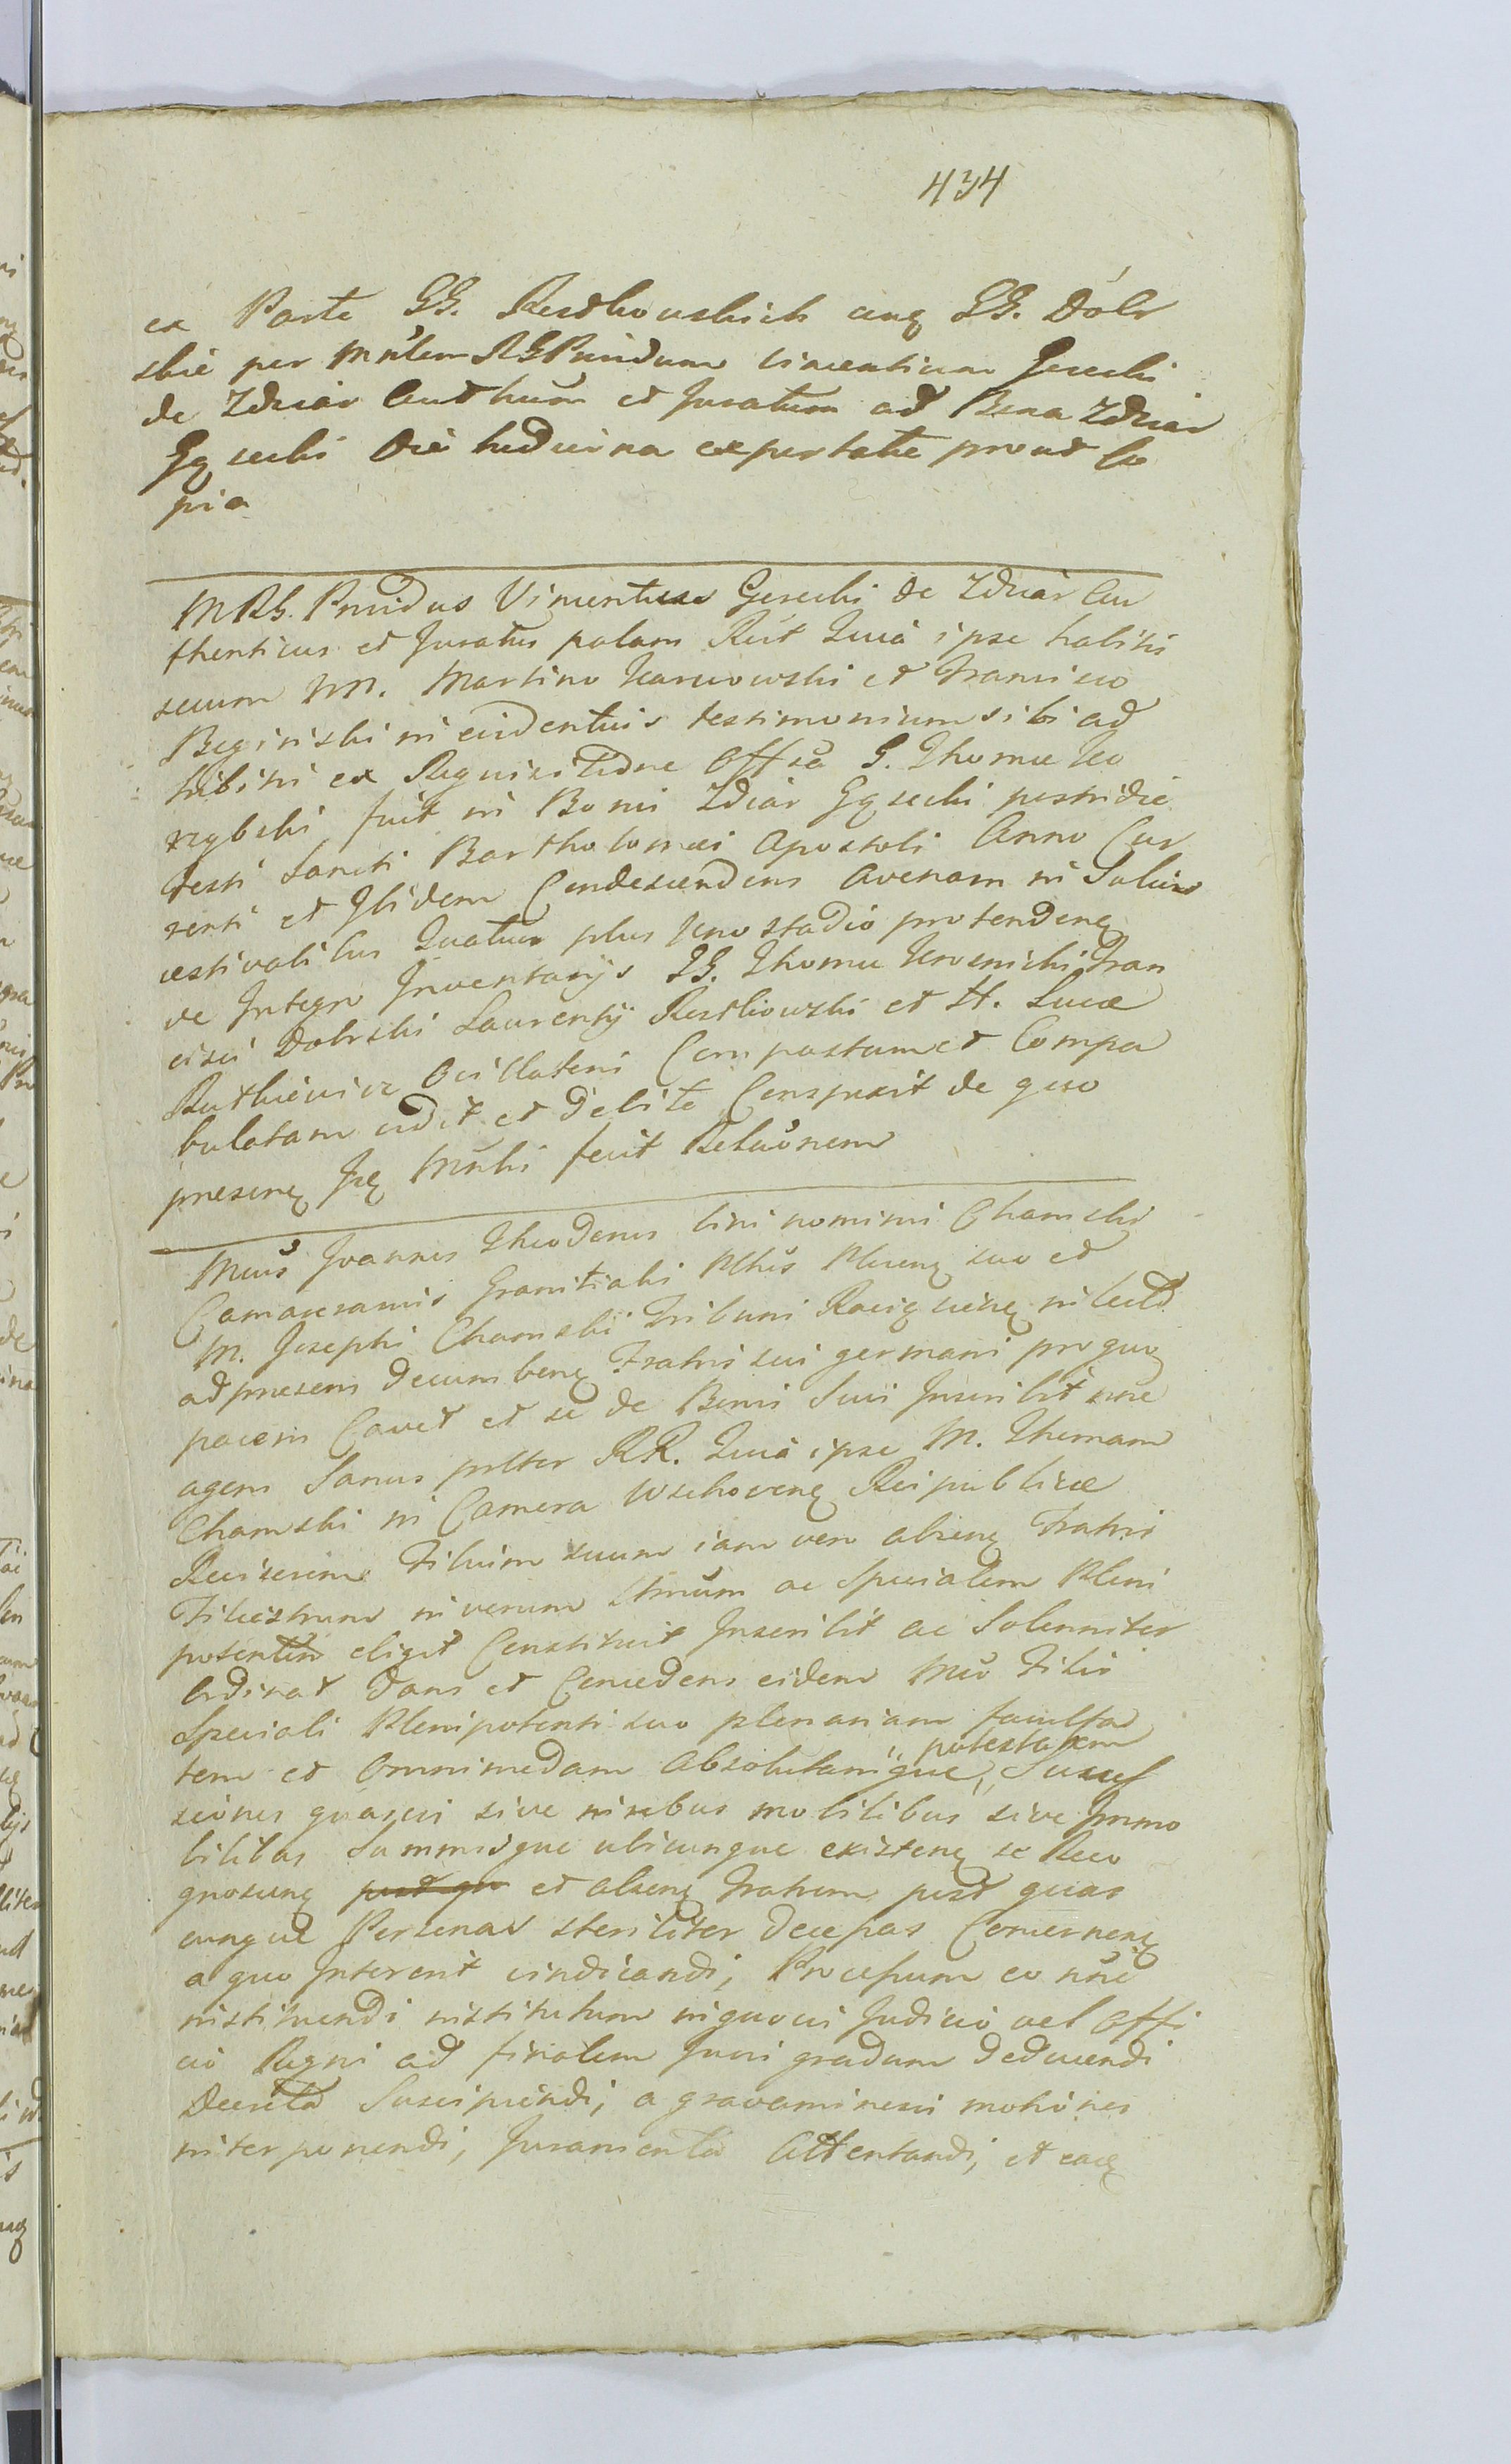 434
ex Parte GG. Rudkowskich ac GG. Dobr
skie per Mnlem RGPrvidum Vincentium Gesecki
de Zdziar Authum et Juratum ad Bona Zdziar
Gąsecki Die hodierna exportatae prout Co
pia
MRG. Prvidus Vincentius Gesecki de Zdziar Au
thenticus et Juratus palam Rcit Quia ipse habitis
secum NN. Martino Karwowski et Francisco
Beginski in evidentius testimonium sibi ad
hibitis ex Requisitione Offsa G. Thomae Ko
rzybski fuit in Bonis Zdziar Gąsecki postridie
Festi Sancti Bartholomaei Apostoli Anno Cur
renti et Ibidem Condescendens Avenam in Sulcis
aestivalibus Quatuor plus Uno stadio protendenę
de Integro Inventarijs GG. Thomae Krosnicki Fran
cisci Dobrski Laurentij Rudkowski et H. Lucae
Rutkiewicz Compastum et Compa
bulatam vidit et debite Conspexit de quo
presenę Jrę Mnhi fecit Relaonem
Mcus Joannes Theodorus bini nominis Chamski
Camaenarius Granitialis Plhis Plocenę suo et
M. Josephi Chamski Tribuni Raciązenę in lecto
ad praesens decumbenę Fratris sui germani pro quo
pacem Cavet et se de Bonis Suis Inscribit nne
agens Sanus pnlter RR. Quia ipse M. Thomam
Chamski in Camera Wschovenę Reipublicae
Filium suum iam vero absenę Fratris
in verum ac Specialem Pleni
potentem eligit Constituit Inscribit ac Solenniter
Ordinat Dans et Concedens eidem Mco Filio
Speciali Plenipotenti suo plenariam faculta
tem et Omnimodam Absolutamque potestatem Succes
siones quasvis sive in rebus mobilibus sive Immo
bilibus Summisque ubicunque existenę se Reco
gnoscenę et absenę Fratrem post quas
cunque Personas steriliter decessas Concernenę
a quo Intererit vindicandi, Processum eo nne
instituendi institutum in quovis Judicio vel Offi
cio Regni ad finalem Juris gradum deducendi
Decreta Suscipiendi, a gravaminosis motiones
interponendi, Juramenta Attentandi, et eaę